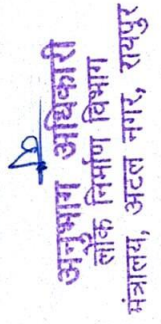 अनुभाग अधिकारी
लोक निर्माण विभाग
मंत्रालय, अटल नगर, रायपुर